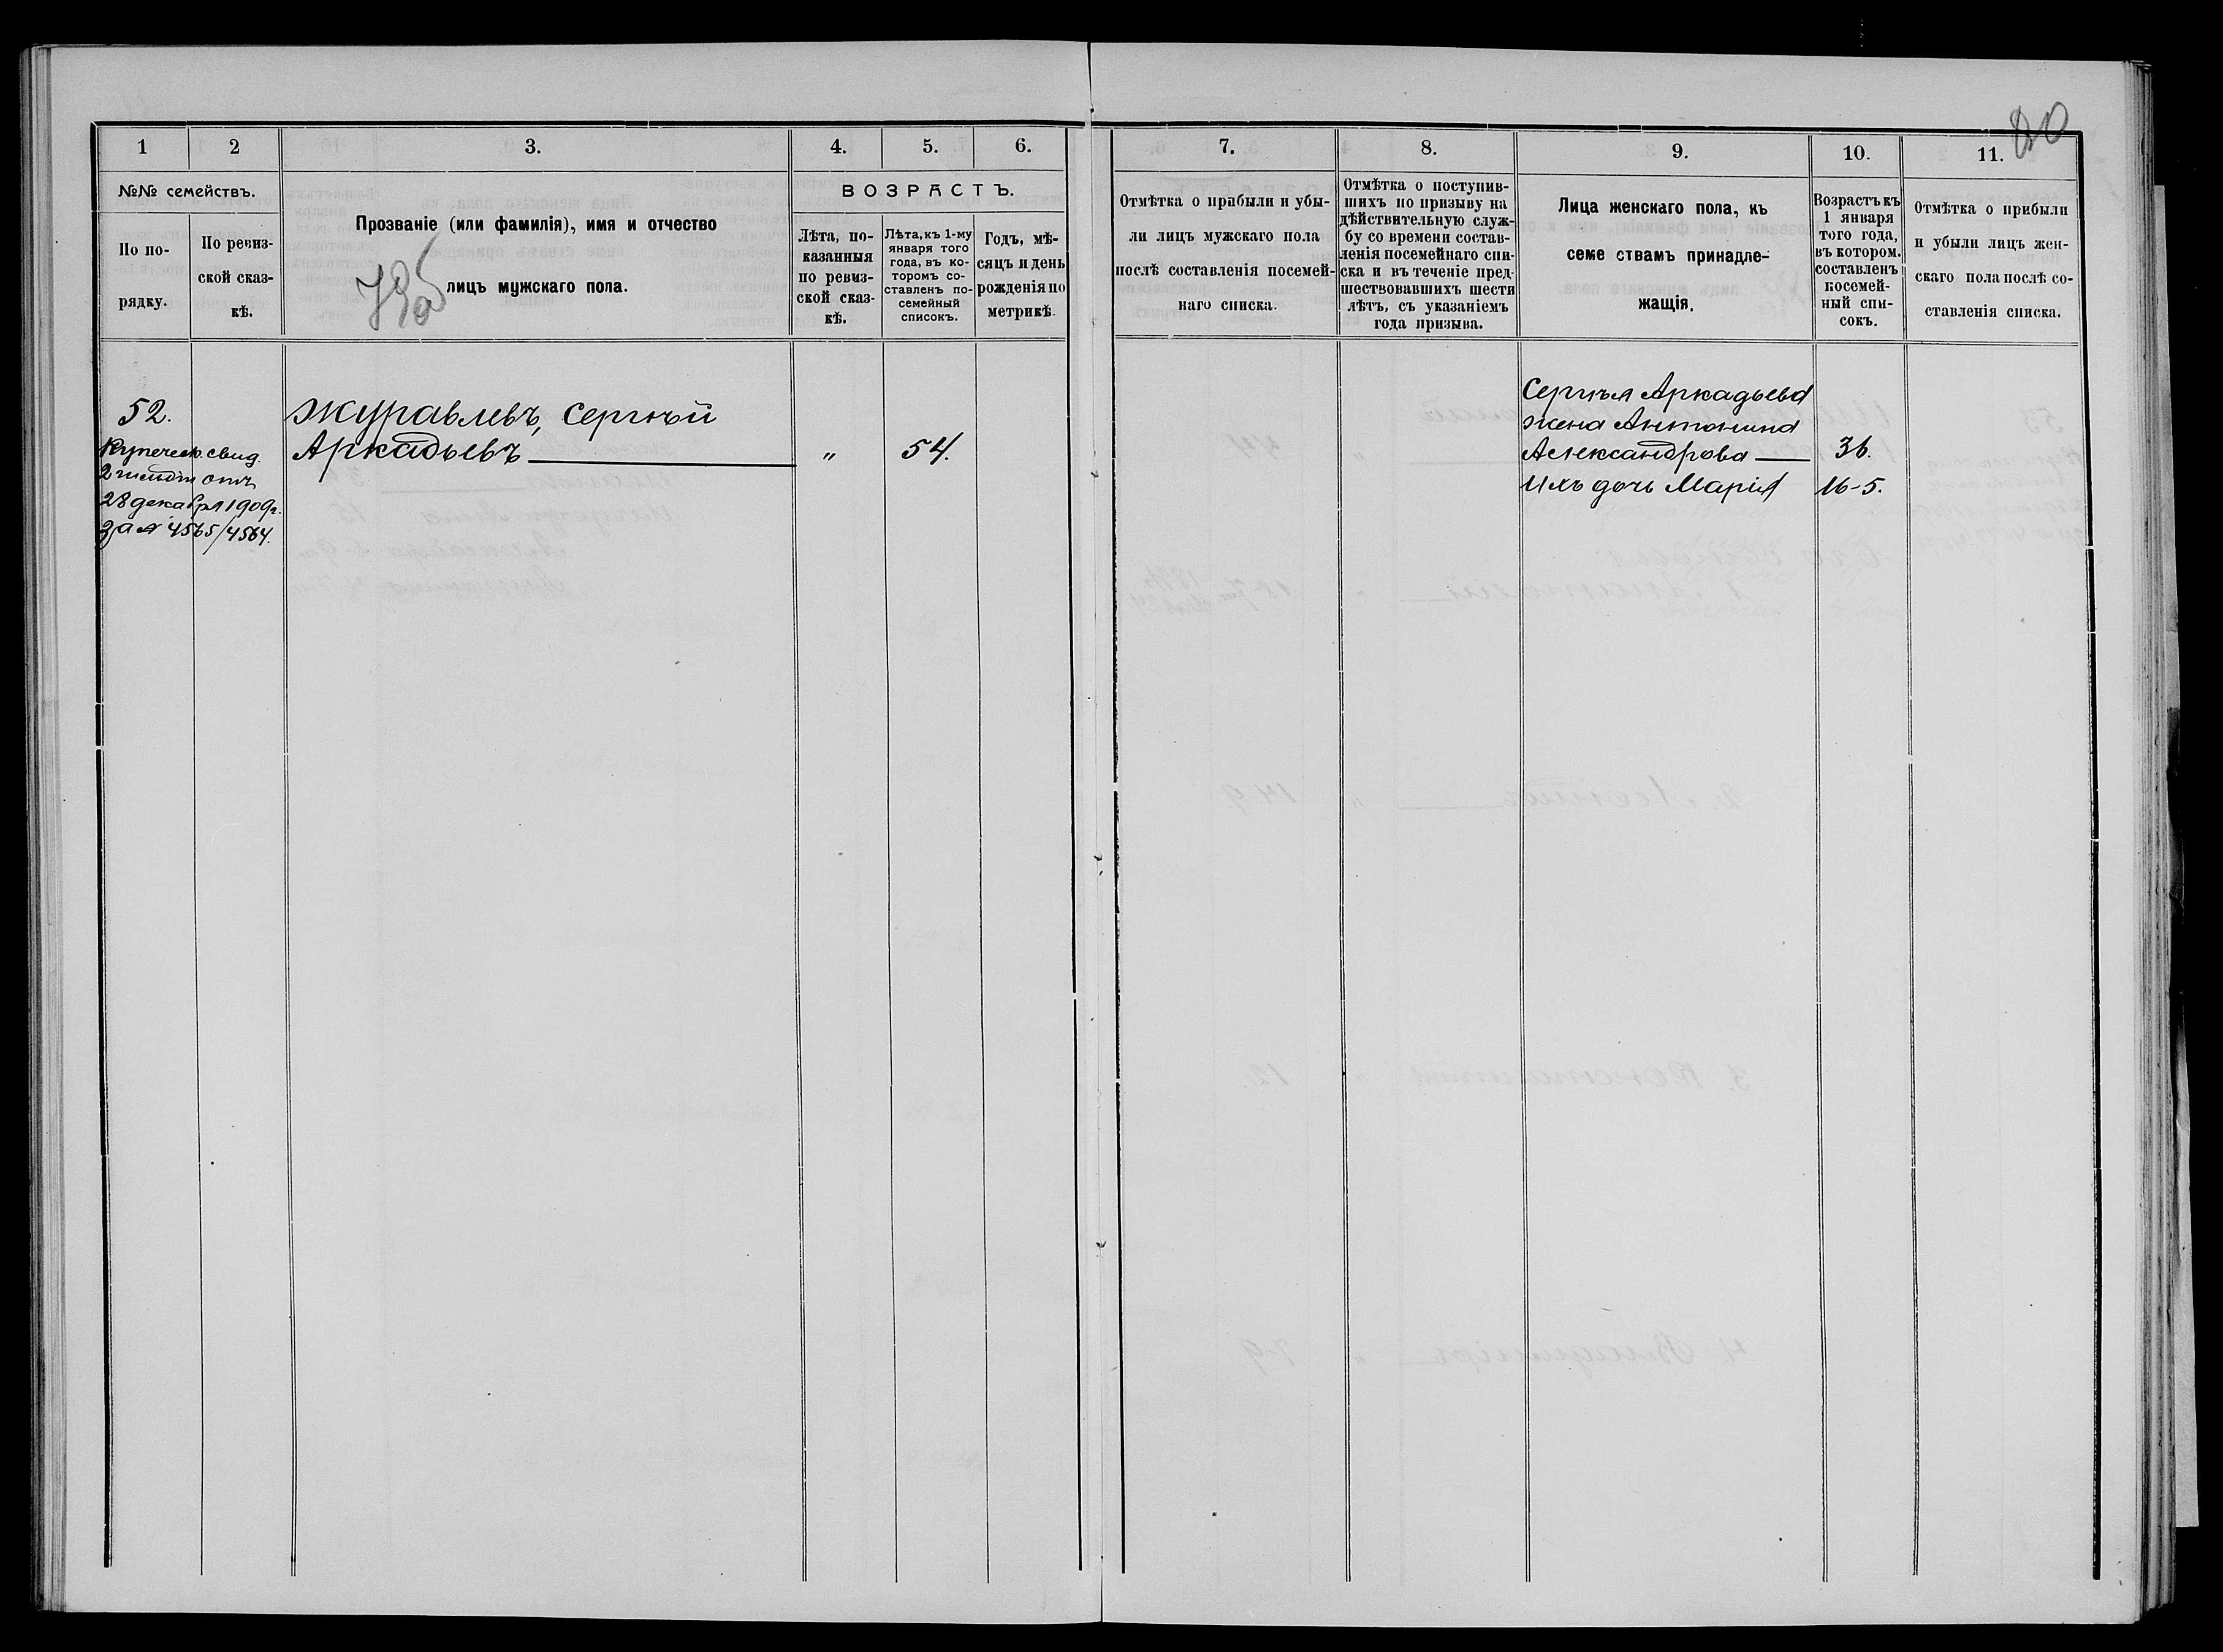 80
1
2
3.
4.
5.
6.
7.
8.
9.
10.
11.
№№ семействъ.
По по-
рядку.
По ревиз-
ской сказ-
кѣ.
Прозваніе (или фамилія), имя и отчество
лицъ мужскаго пола.
ВОЗРАСТЪ.
Лѣта, по-
казанныя
по ревиз-
ской сказ-
кѣ.
Лѣта, къ 1-му
января того
года, въ ко-
торомъ со-
ставленъ по-
семейный
списокъ.
Годъ, мѣ-
сяцъ и день
рожденія по
метрикѣ.
Отмѣтка о прибыли и убы-
ли лицъ мужскаго пола
послѣ составленія посемей-
наго списка.
Отмѣтка о поступив-
шихъ по призыву на
дѣйствительную служ-
бу со времени состав-
ленія посемейнаго спи-
ска и въ теченіе пред-
шествовавшихъ шести
лѣтъ, съ указаніемъ
года призыва.
Лица женскаго пола, къ
семе ствамъ принадле-
жащія,
Возрастъ къ
1 января
того года,
въ котором.
составленъ
посемей-
ный спи-
сокъ.
Отмѣтка о прибыли
и убыли лицъ жен-
скаго пола послѣ со-
ставленія списка.
52.
Купеческ. свид.
2 гильдіи отъ
28 декабря 1909г.
за № 4565/4564.
Журавлевъ, Сергѣй
Аркадьевъ
„
54.
Сергѣя Аркадьева
жена Антонина
Александрова
36.
Ихъ дочь Марія
16-5.